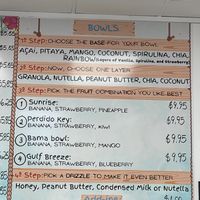 BOWLS
1st Step: CHOOSE THE BASE FOR YOUR BOWL
AÇAI, PITAYA, MANGO, COCONUT, SPIRULINA, CHIA,
RAINBOW(Layers of Vanilla, Spirulina, and Strawberry)
2nd Step: NOW, CHOOSE ONE LAYER
GRANOLA, NUTELLA, PEANUT BUTTER, CHIA, COCONUT
3rd Step: PICK THE FRUIT COMBINATION YOU LIKE BEST
1 Sunrise: $9.95
BANANA, STRAWBERRY, PINEAPPLE
2 Perdido Key: $9.95
BANANA, STRAWBERRY, KIWI
3 Bama bowl: $9.95
BANANA, STRAWBERRY, MANGO
4 Gulf Breeze: $9.95
BANANA, STRAWBERRY, BLUEBERRY
4th Step: PICK A DRIZZLE TO MAKE IT EVEN BETTER
Honey, Peanut Butter, Condensed Milk or Nutella
Add-ins